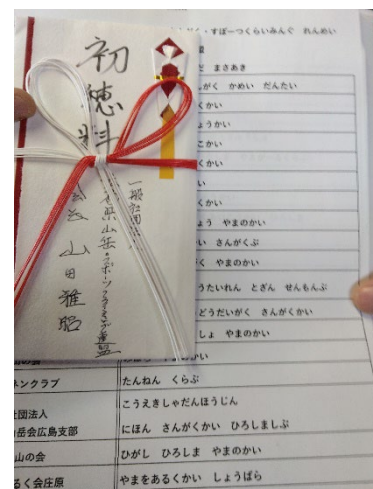 初穂料
一般社団法人
県山岳・スポーツクライミング連盟
会長 山田雅昭
がく・すぽーつくらいみんぐ れんめい
だ まさあき
がく かめい だんたい
くかい
ょうかい
こかい
くかい
い
くかい
ょう やまのかい
い さんがくぶ
く やまのかい
うたいれん とざん せんもんぶ
どうだいがく さんがくかい
しょ やまのかい
のかい
ネンクラブ たんねん くらぶ
社団法人 こうえきしゃだんほうじん
岳会広島支部 にほん さんがくかい ひろしましぶ
山の会 ひがし ひろしま やまのかい
るく会庄原 やまをあるくかい しょうばら